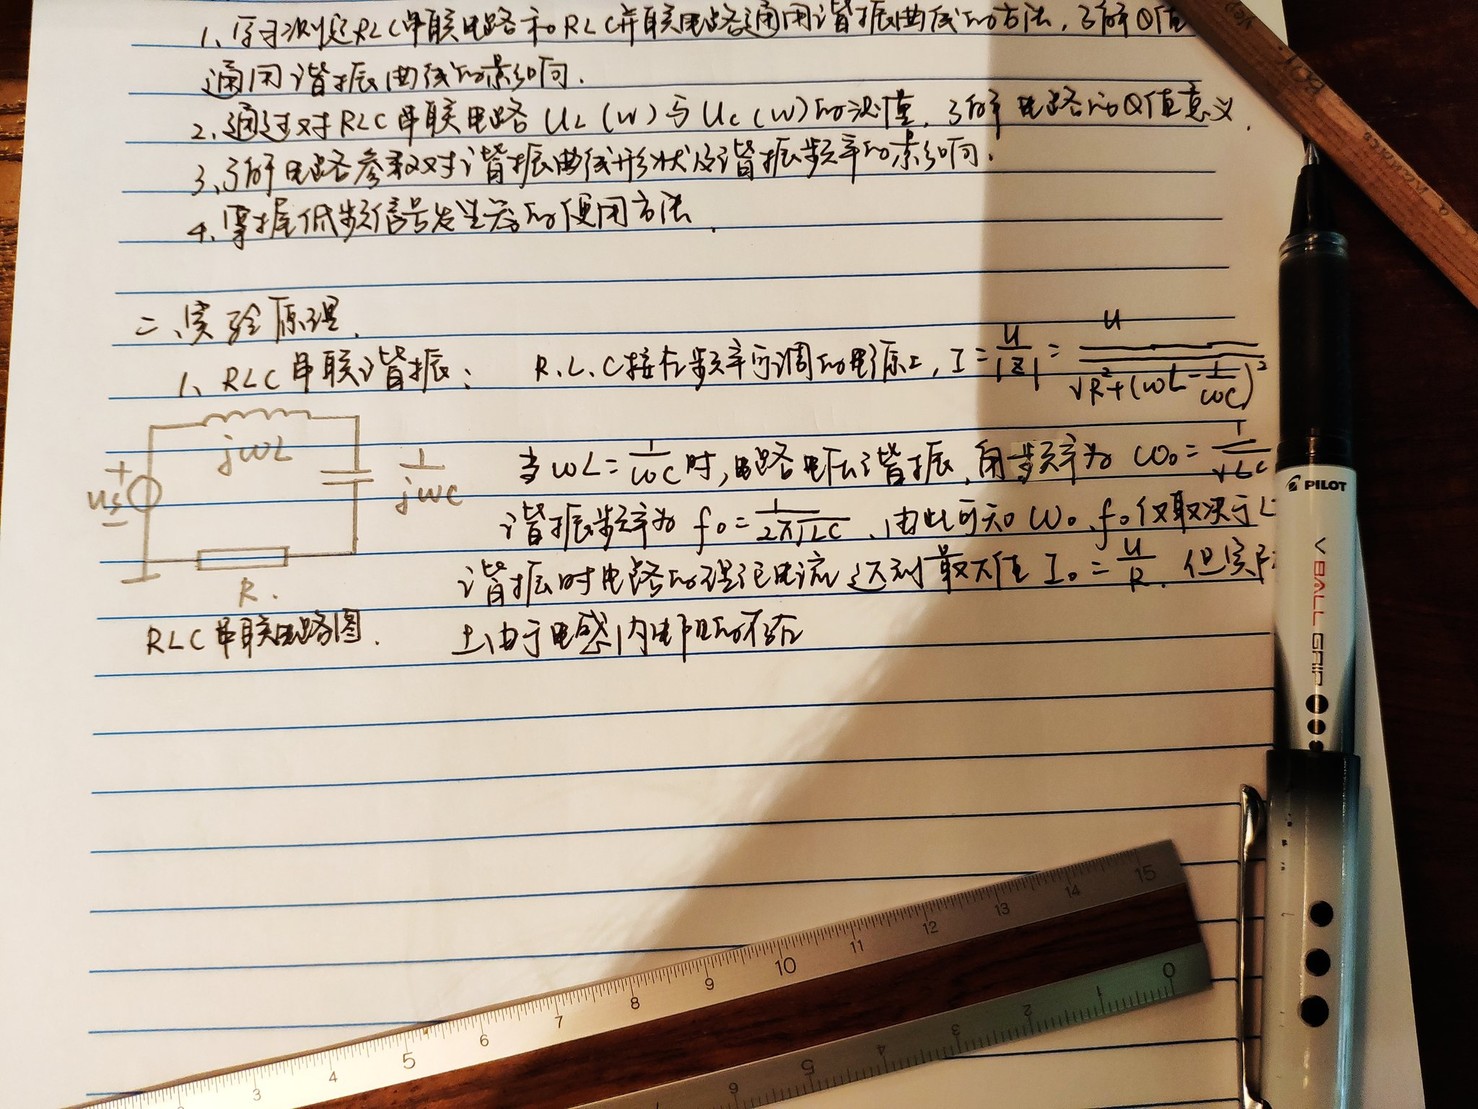 1、学习测定RLC串联电路和RLC并联电路通用谐振曲线的方法,了解Q值
通用谐振曲线的影响.
2、通过对RLC串联电路 UL(W)与Uc(W)的测量,了解电路的Q值意义.
3、了解电路参数对谐振曲线形状及谐振频率的影响.
4、掌握低频信号发生器的使用方法.
二、实验原理.
1、RLC串联谐振: R.L.C接在频率可调的电源上, I=U/|Z|=U/√R²+(ωL-1/ωC)²
当ωL=1/ωC时,电路电压谐振,角频率为 ω₀=1/√LC
谐振频率为 f₀=1/2π√LC、由此可知ω₀、f₀仅取决于L
谐振时电路的理论电流达到最大值 I₀=U/R. 但实际
上,由于电感内电阻的存在
jωL
+
us
-
1/jωC
R.
RLC串联电路图.
PILOT
V BALL GRIP
2 3 4 5 6 7 8 9 10 11 12 13 14 15
0 1 2 3 4 5 6 7